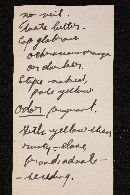 no veil.
Taste bitter.
Cap glabrous
ochraceous-orange
or darker.
Stipe naked,
pale yellow
Odor pungent.
Gills yellow then
rusty-
broad, adnate-